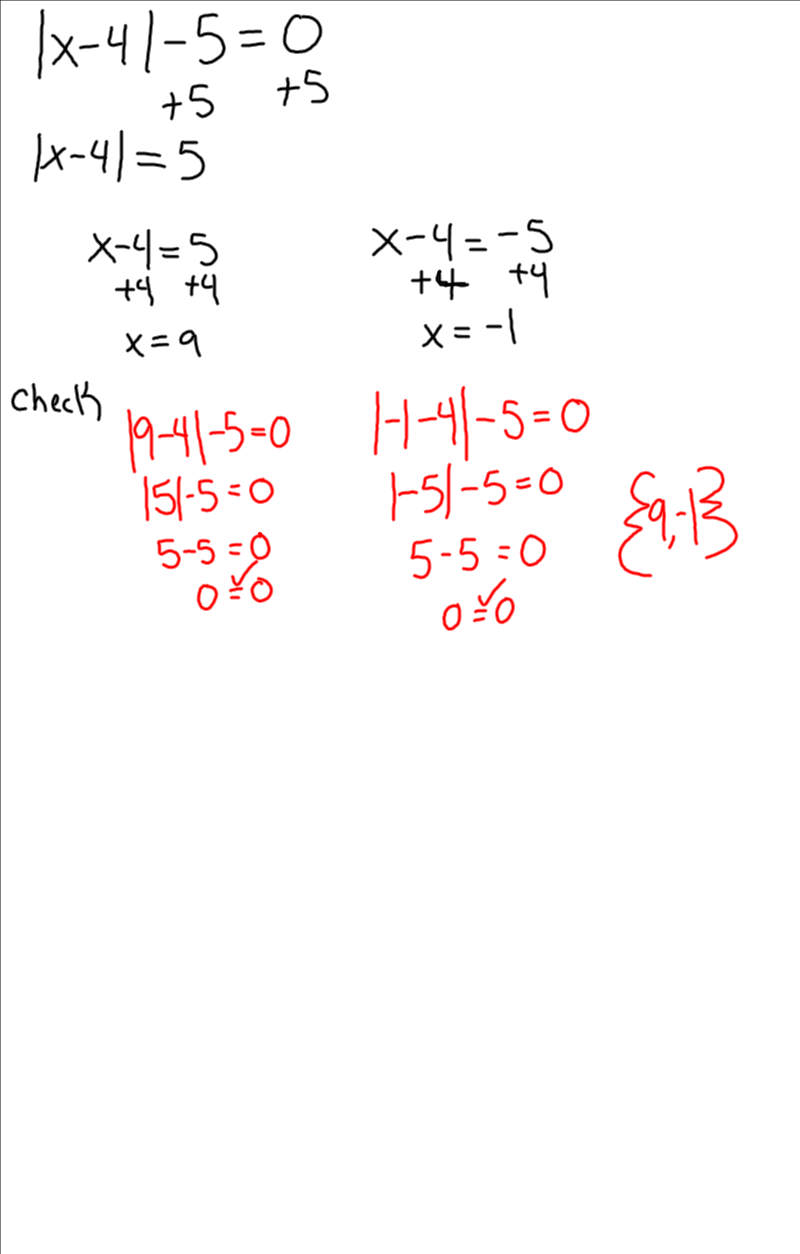 |x-4|-5=0
+5 +5
|x-4|=5
x-4=5
+4 +4
x=9
x-4=-5
+4 +4
x=-1
check
|9-4|-5=0
|5|-5=0
5-5=0
0=0 ✓
|-1-4|-5=0
|-5|-5=0
5-5=0
0=0 ✓
{9,-1}